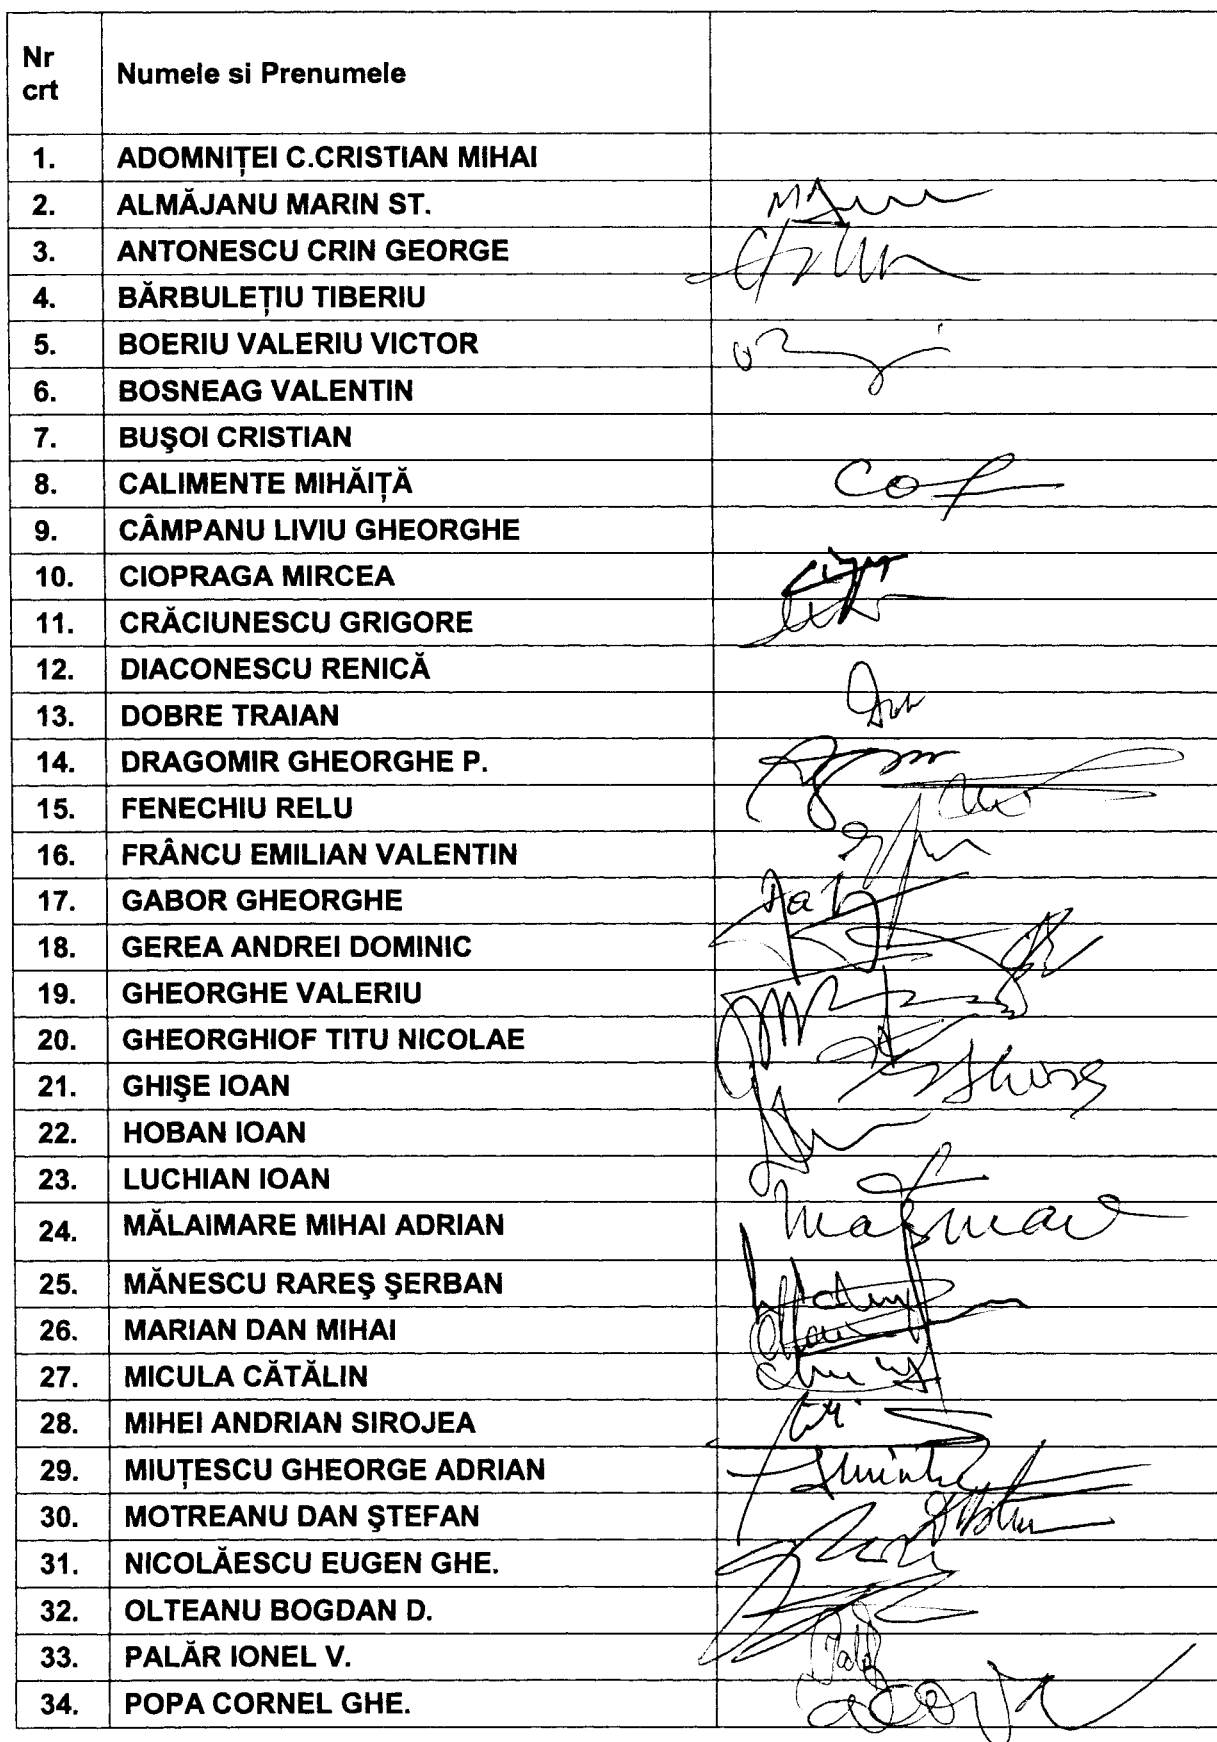 Nr crt Numele si Prenumele
1. ADOMNIȚEI C.CRISTIAN MIHAI
2. ALMĂJANU MARIN ST.
3. ANTONESCU CRIN GEORGE
4. BĂRBULEȚIU TIBERIU
5. BOERIU VALERIU VICTOR
6. BOSNEAG VALENTIN
7. BUŞOI CRISTIAN
8. CALIMENTE MIHĂIȚĂ
9. CÂMPANU LIVIU GHEORGHE
10. CIOPRAGA MIRCEA
11. CRĂCIUNESCU GRIGORE
12. DIACONESCU RENICĂ
13. DOBRE TRAIAN
14. DRAGOMIR GHEORGHE P.
15. FENECHIU RELU
16. FRÂNCU EMILIAN VALENTIN
17. GABOR GHEORGHE
18. GEREA ANDREI DOMINIC
19. GHEORGHE VALERIU
20. GHEORGHIOF TITU NICOLAE
21. GHIŞE IOAN
22. HOBAN IOAN
23. LUCHIAN IOAN
24. MĂLAIMARE MIHAI ADRIAN
25. MĂNESCU RAREŞ ŞERBAN
26. MARIAN DAN MIHAI
27. MICULA CĂTĂLIN
28. MIHEI ANDRIAN SIROJEA
29. MIUȚESCU GHEORGE ADRIAN
30. MOTREANU DAN ŞTEFAN
31. NICOLĂESCU EUGEN GHE.
32. OLTEANU BOGDAN D.
33. PALĂR IONEL V.
34. POPA CORNEL GHE.